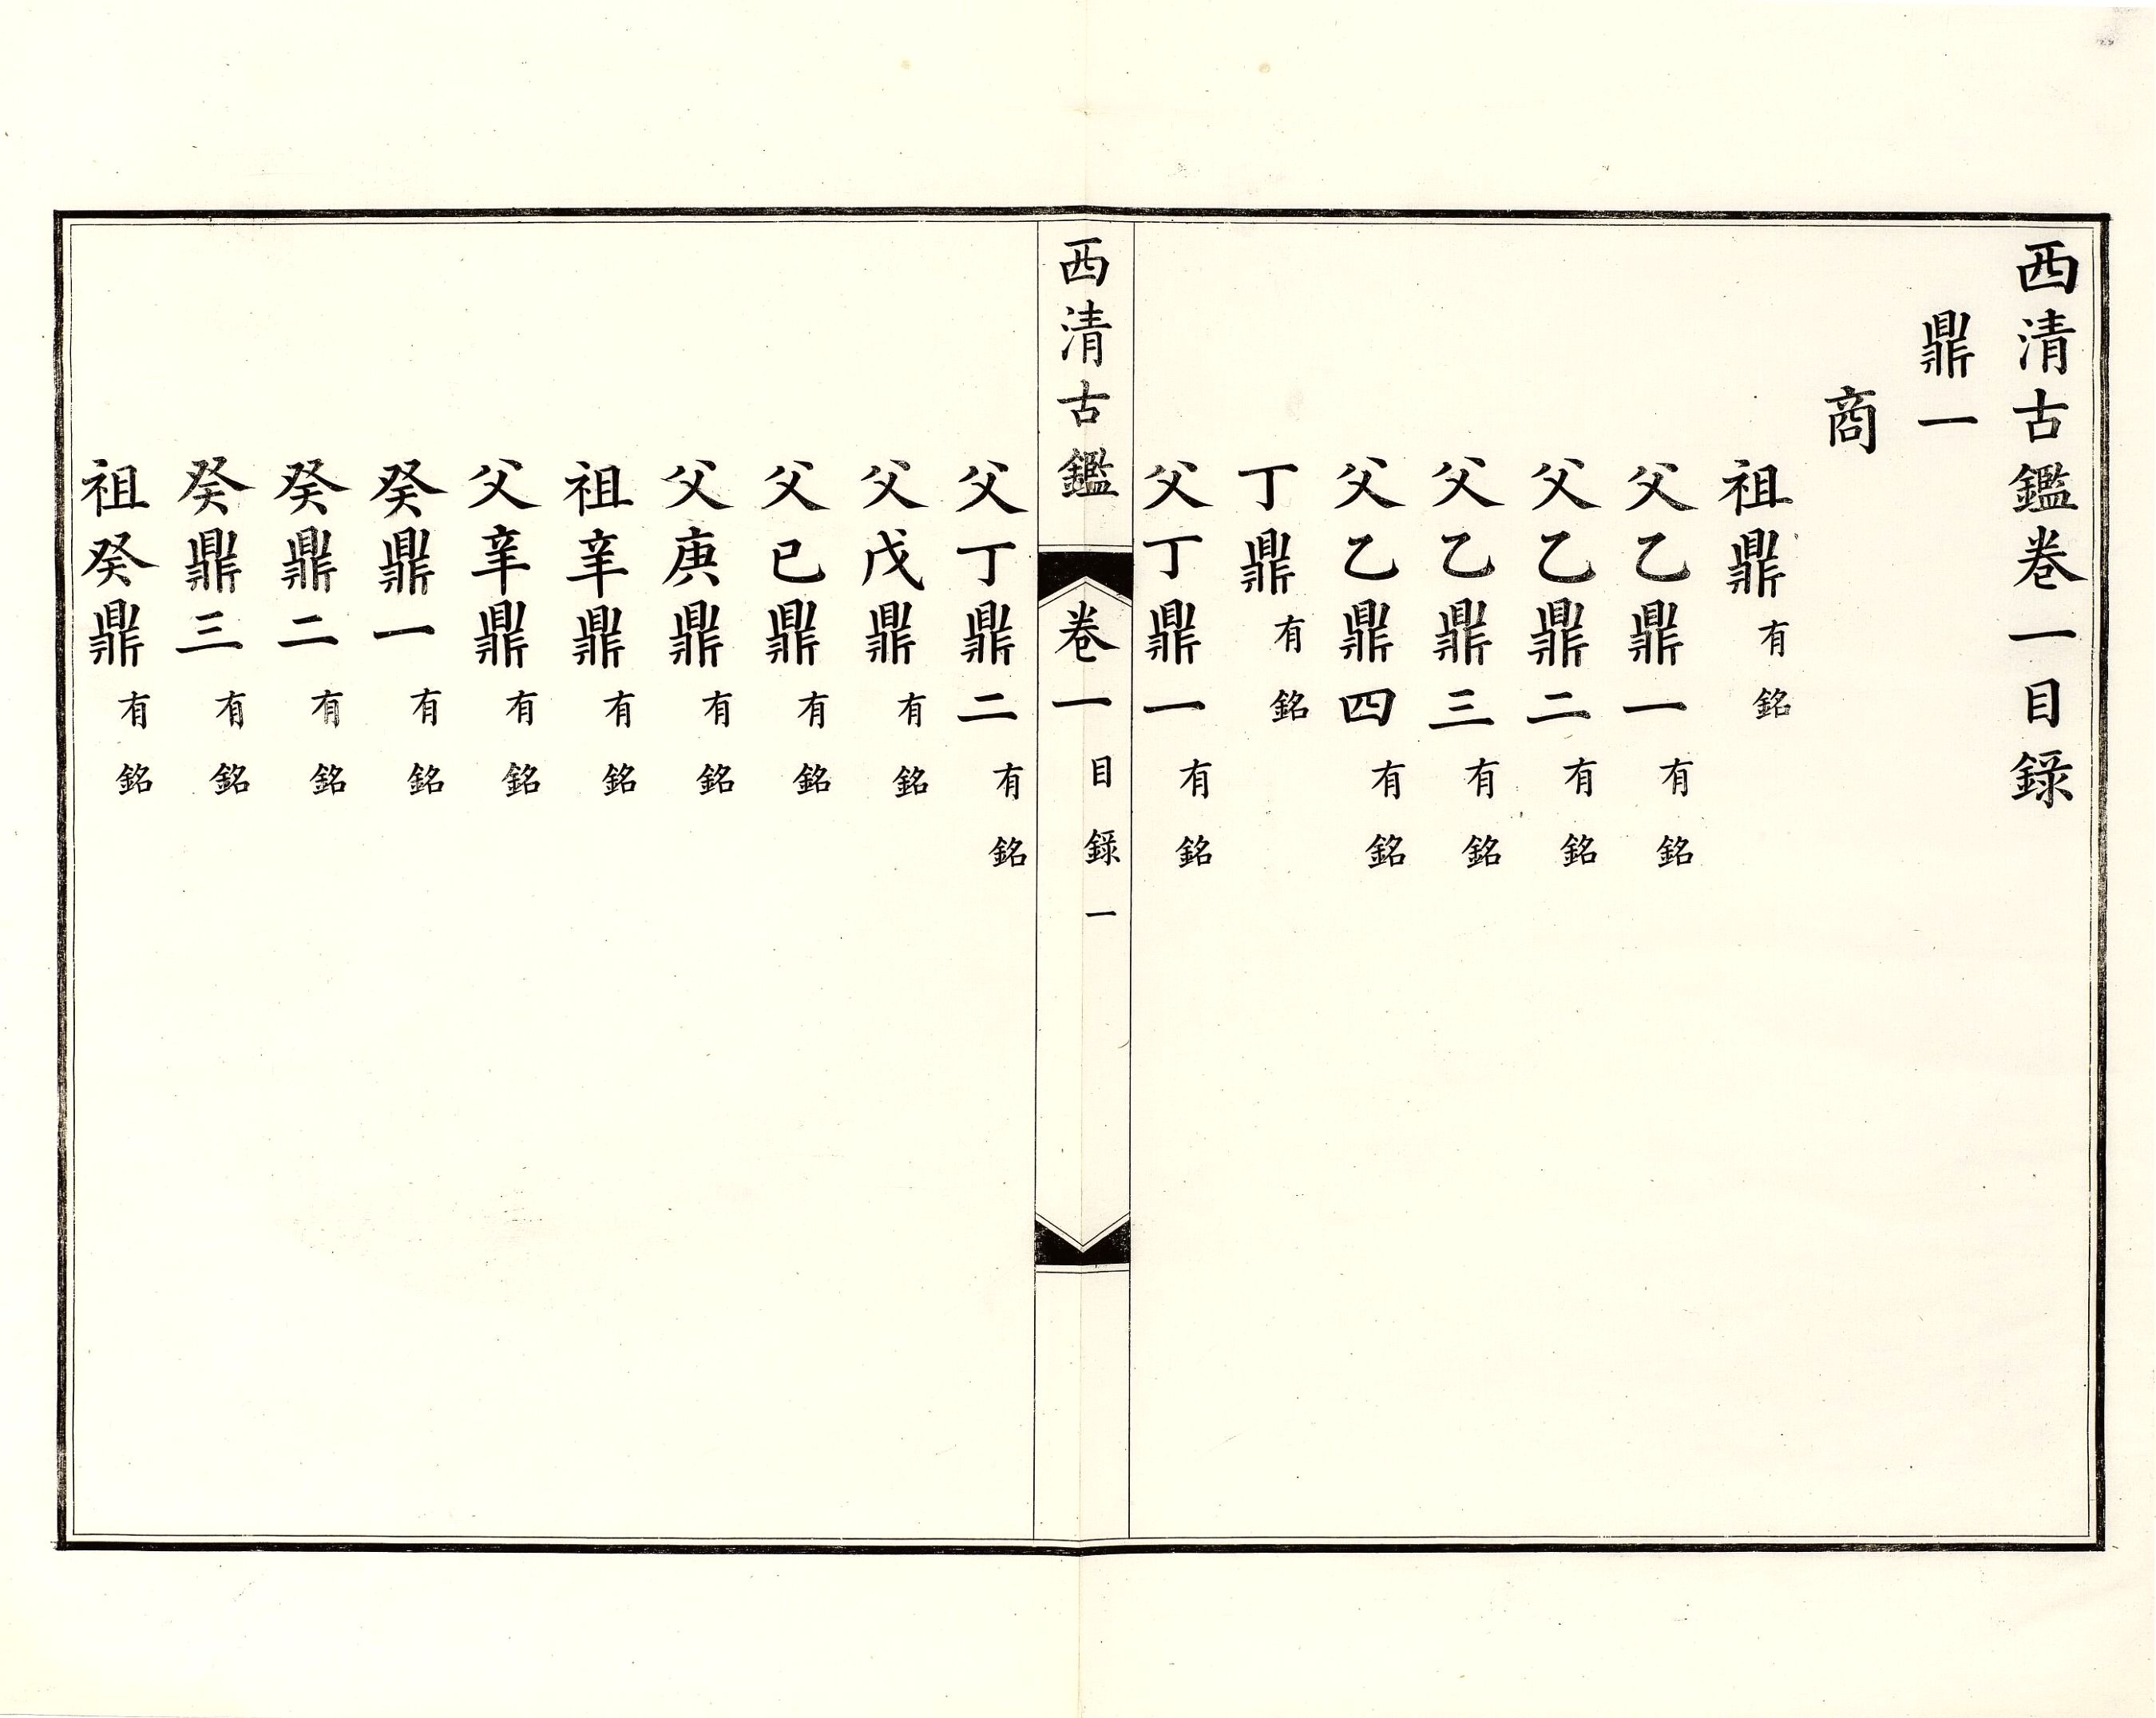 西清古鑑卷一目錄
鼎一
商
祖鼎有銘
父乙鼎一有銘
父乙鼎二有銘
父乙鼎三有銘
父乙鼎四有銘
丁鼎有銘
父丁鼎一有銘
西清古鑑 卷一 目錄 一
父丁鼎二有銘
父戊鼎有銘
父已鼎有銘
父庚鼎有銘
祖辛鼎有銘
父辛鼎有銘
癸鼎一有銘
癸鼎二有銘
癸鼎三有銘
祖癸鼎有銘